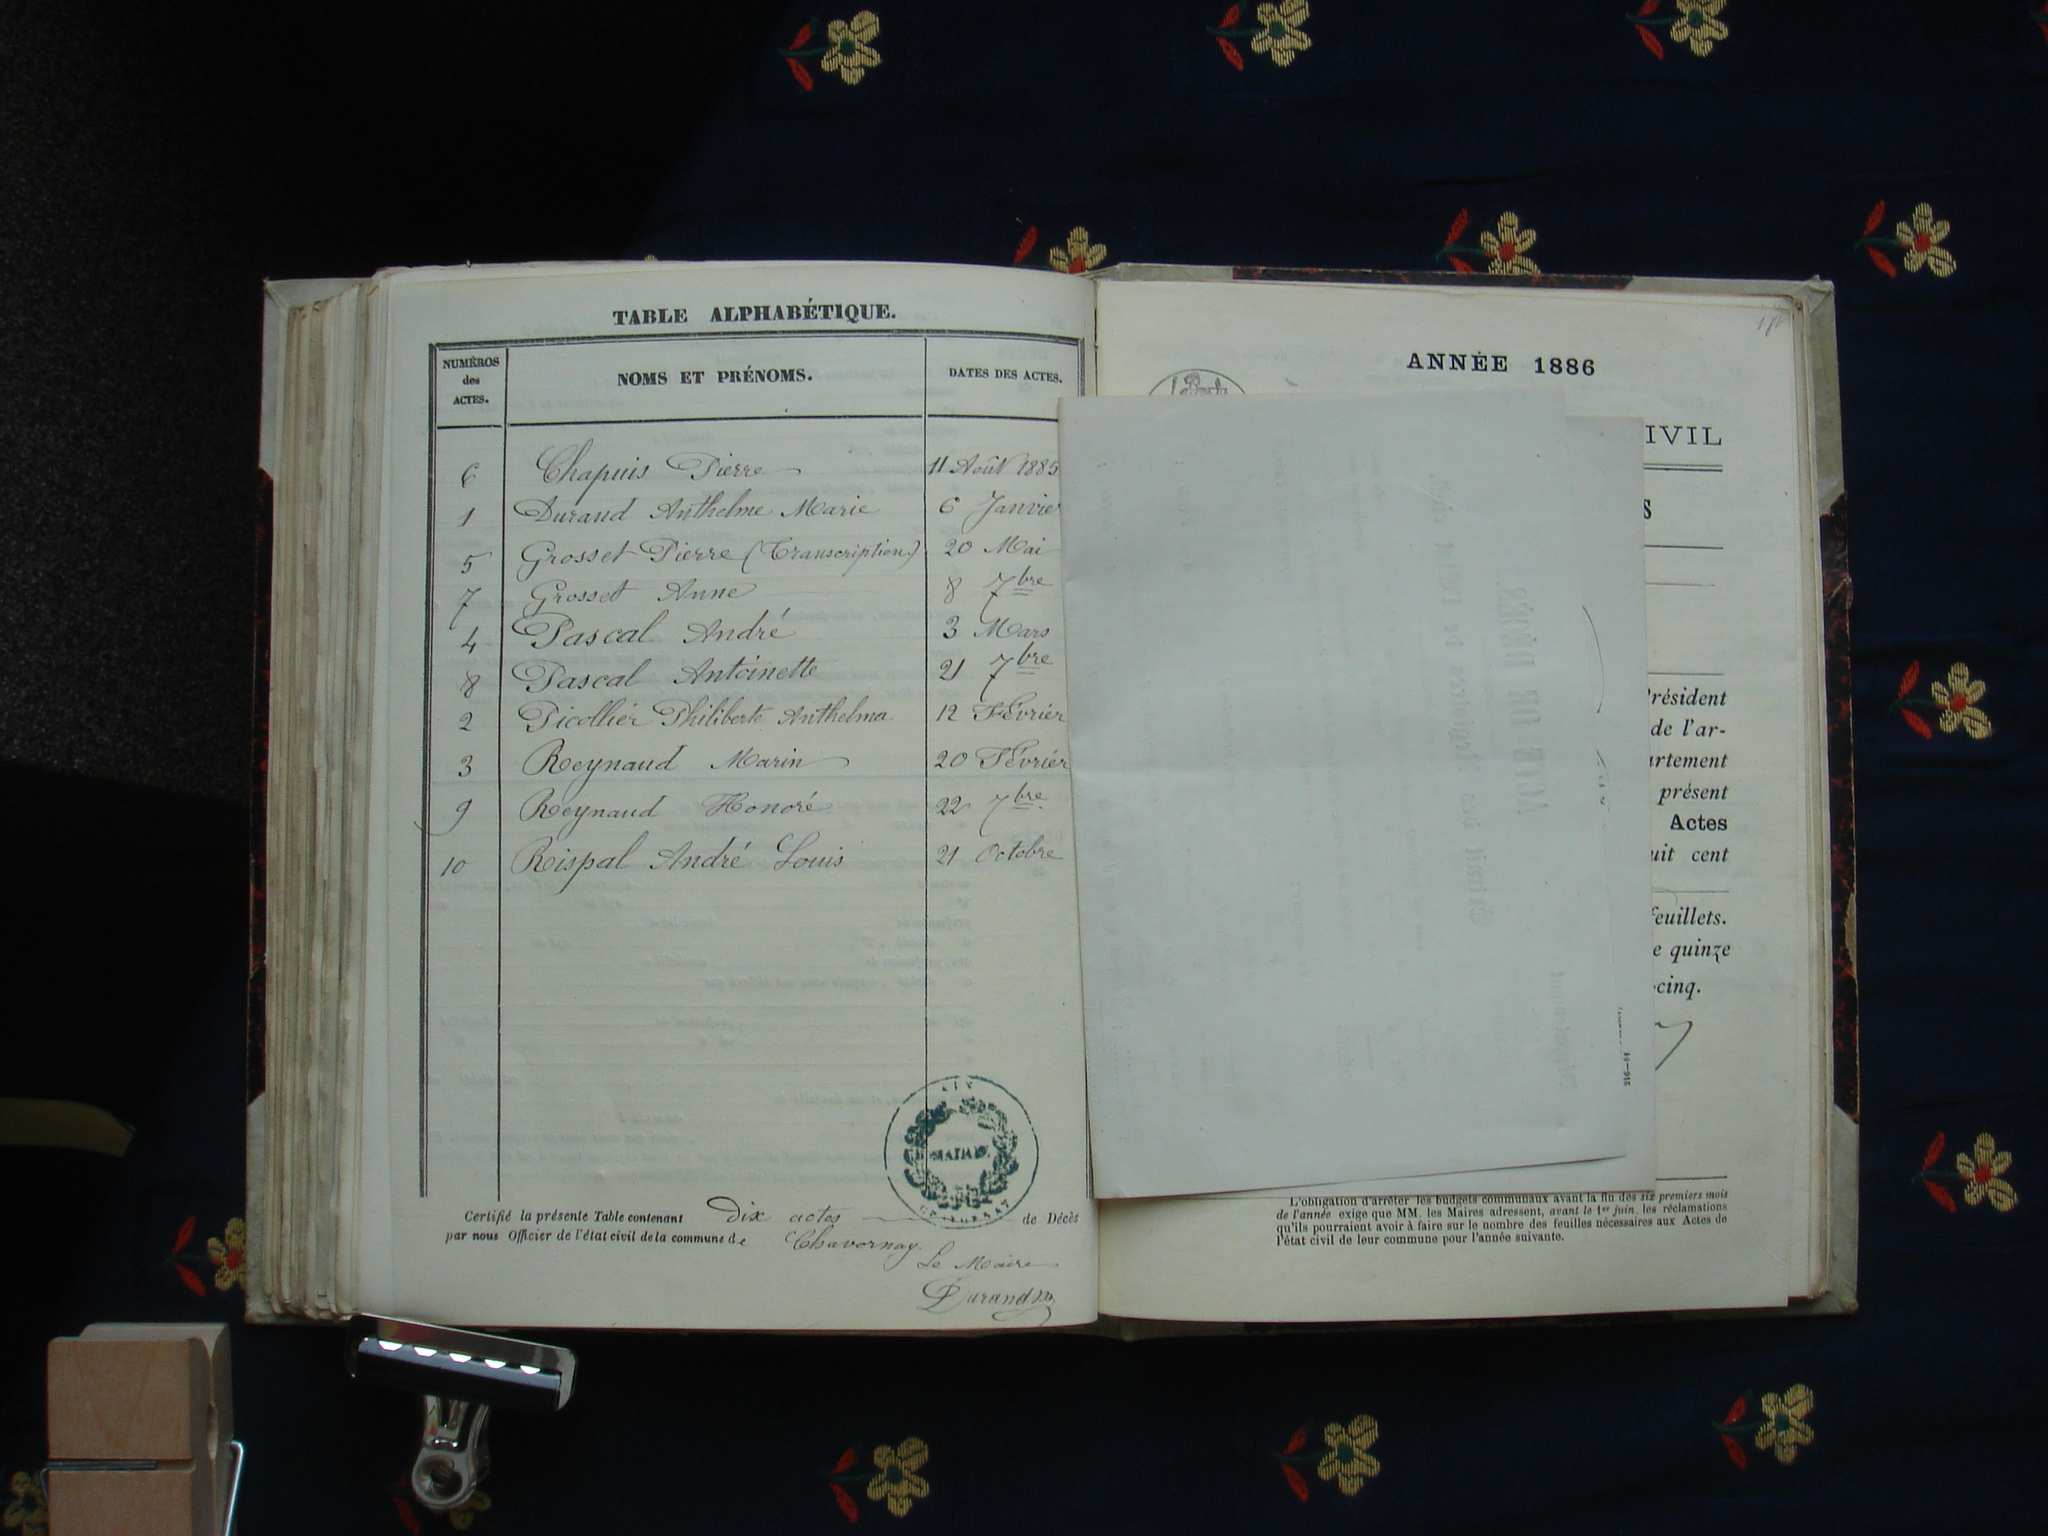 TABLE ALPHABÉTIQUE.
NUMÉROS des ACTES. NOMS ET PRÉNOMS. DATES DES ACTES.
6 Chapuis Pierre 11 Août 1885
1 Durand Anthelme Marie 6 Janvier
5 Grosset Pierre (Transcription) 20 Mai
7 Grosset Anne 8 7bre
4 Pascal André 3 Mars
8 Pascal Antoinette 21 7bre
2 Picollier Philiberte Anthelma 12 Février
3 Reynaud Marin 20 Février
9 Reynaud Honoré 22 7bre
10 Rispal André Louis 21 Octobre
MAIRIE
Certifié la présente Table contenant Dix actes de Décès
par nous Officier de l'état civil de la commune de Chavornay.
Le Maire
Durand
ANNÉE 1886
IVIL
S
résident
de l'ar-
artement
présent
Actes
uit cent
feuillets.
e quinze
-cinq.
L'obligation d'arrêter les budgets communaux avant la fin des six premiers mois
de l'année exige que MM. les Maires adressent, avant le 1er juin, les réclamations
qu'ils pourraient avoir à faire sur le nombre des feuilles nécessaires aux Actes de
l'état civil de leur commune pour l'année suivante.